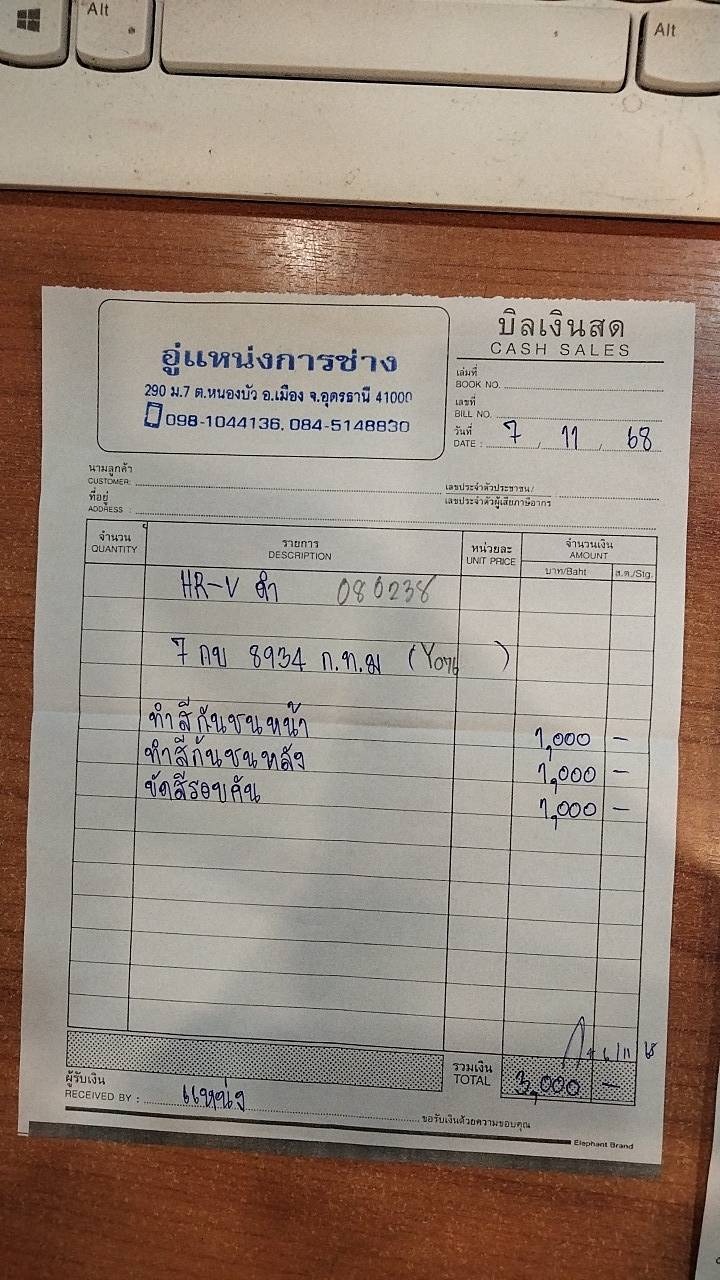 Alt
Alt
อู่แหน่งการช่าง
290 ม.7 ต.หนองบัว อ.เมือง จ.อุดรธานี 41000
098-1044136, 084-5148830
บิลเงินสด
CASH SALES
เล่มที่
BOOK NO.
เลขที่
BILL NO.
วันที่
DATE : 7 , 11 , 68
นามลูกค้า
CUSTOMER:
เลขประจำตัวประชาชน/
เลขประจำตัวผู้เสียภาษีอากร
ที่อยู่
ADDRESS :
จำนวน
QUANTITY
รายการ
DESCRIPTION
หน่วยละ
UNIT PRICE
จำนวนเงิน
AMOUNT
บาท/Baht
ส.ต./Stg.
HR-V ดำ 080238
7 กข 8934 ก.ท.ม
ทำสีกันชนหน้า 1,000 -
ทำสีกันชนหลัง 1,000 -
ขัดสีรอบคัน 1,000 -
รวมเงิน
TOTAL 3,000 -
ผู้รับเงิน
RECEIVED BY : แหน่ง
ขอรับเงินด้วยความขอบคุณ
Elephant Brand